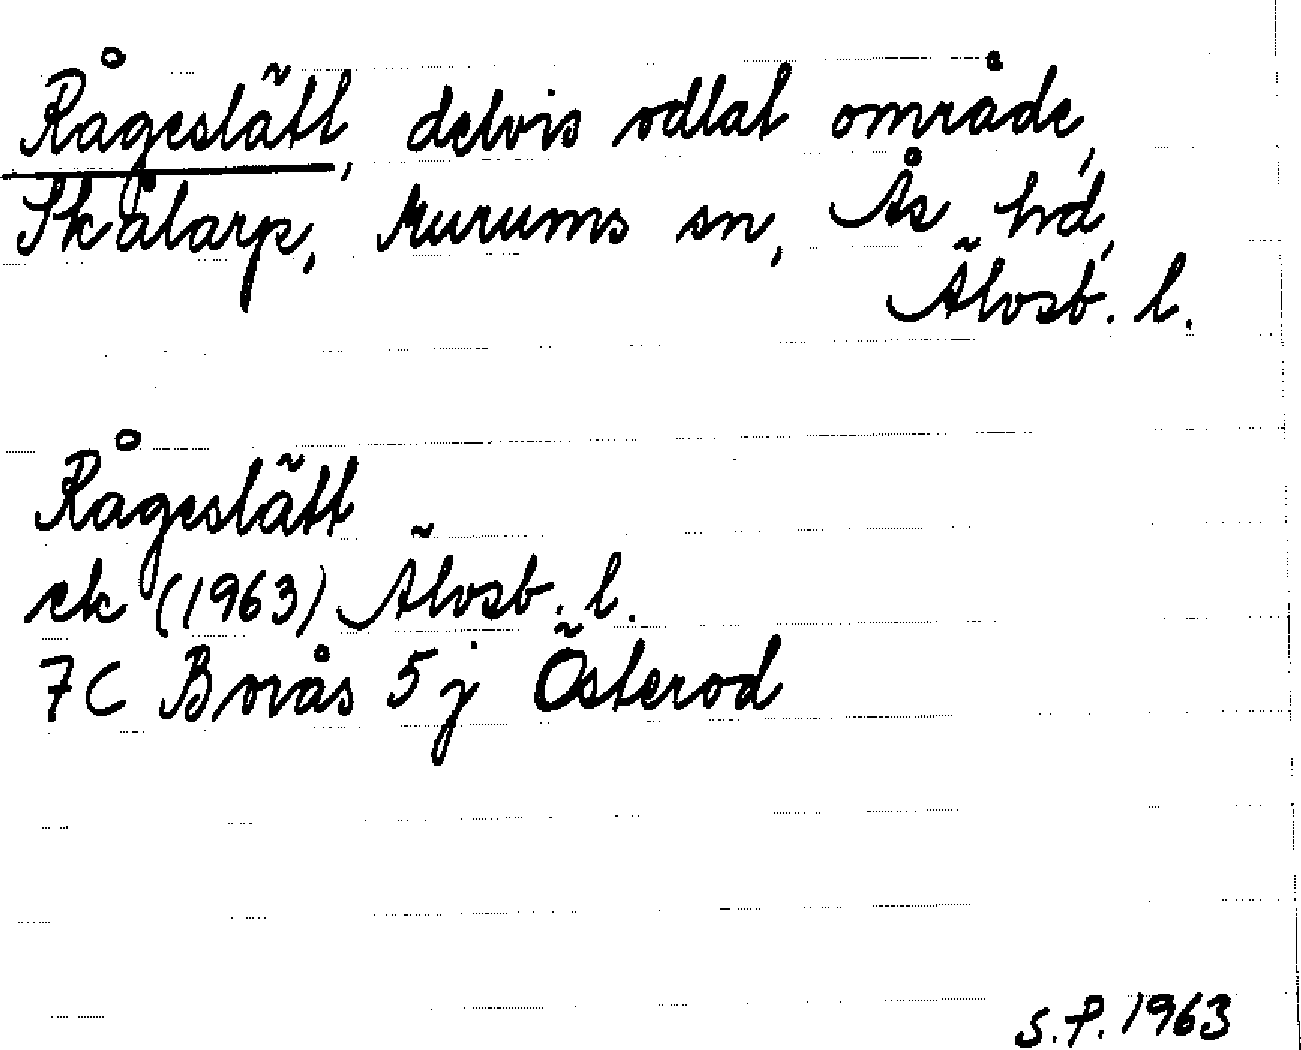 Rågeslätt, delvis odlat område,
Skålarp, Murums sn, Ås hd,
Älvsb. l.
Rågeslätt
ek (1963) Älvsb. l.
7C Borås 5j Österod
S.P. 1963